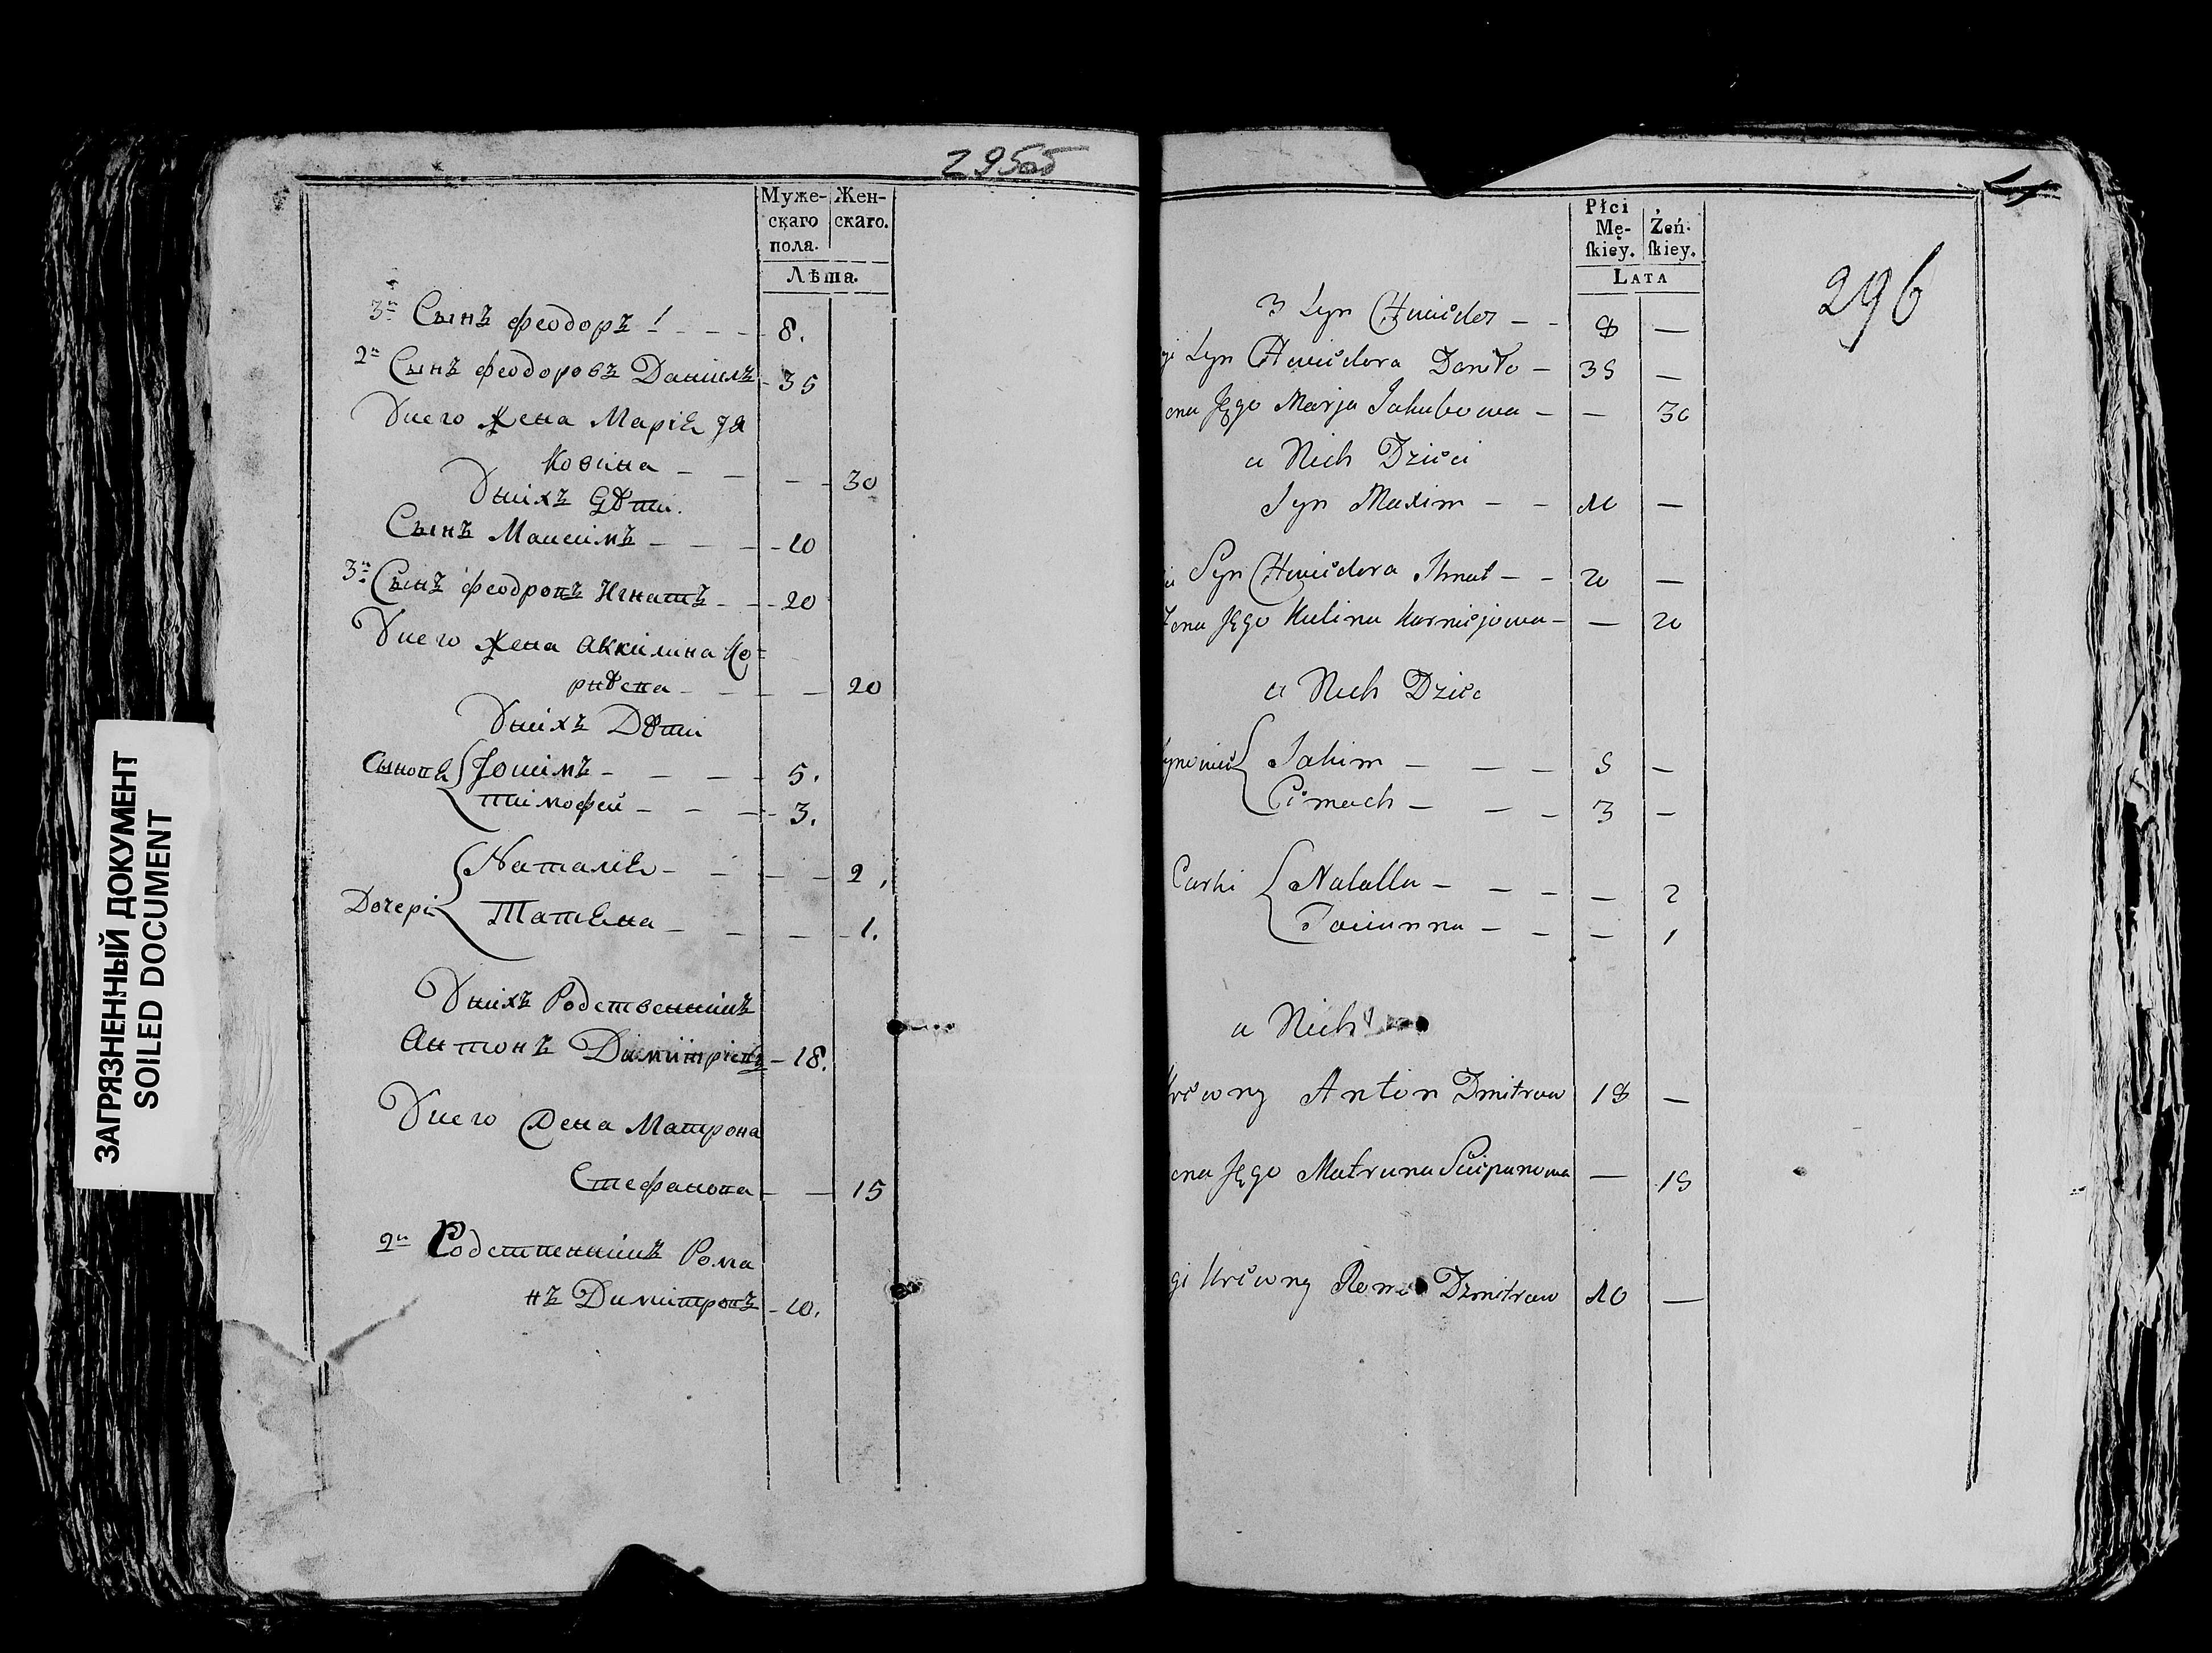 295об
Муже-
скаго
пола.
Жен-
скаго.
Лѣта.
3й Сынъ Феодоръ 8.
2й Сынъ Феодоровъ Даниилъ 35
У него Жена Марія Яковина 30
У нихъ Дѣти.
Сынъ Максимъ 10
3й Сынъ Феодровъ Игнатъ 20
У него Жена Аккилина Корнѣева 20
У нихъ Дѣти
Сыновя Іокимъ 5.
Тимофей 3.
Дочери Наталія 2.
Татяна 1.
У нихъ Родственникъ
Антонъ Димитріевъ 18.
У него Жена Матрона
Стефанова 15
2й Родственникъ Рома
нъ Димитровъ 10.
ЗАГРЯЗНЕННЫЙ ДОКУМЕНТ
SOILED DOCUMENT
296
Płci
Mę-
skiey.
Żeń-
skiey.
LATA
3 Syn Chwiedor 8 —
Syn Chwiedora Daniło 35 —
ona Jego Marja Jakubowa — 30
u Nich Dzieci
Syn Maxim 10 —
Syn Chwiedora Ihnat 20 —
Żona Jego Kulina Karniejowa — 20
u Nich Dziec
ynowie Jakim 5 —
Cimoch 3 —
Curki Natalla — 2
Taciunna — 1
u Nich
Krewny Anton Dmitrow 18 —
ona Jego Matruna Sciepanowa — 15
gi Krewny Roman Dzmitrow 10 —